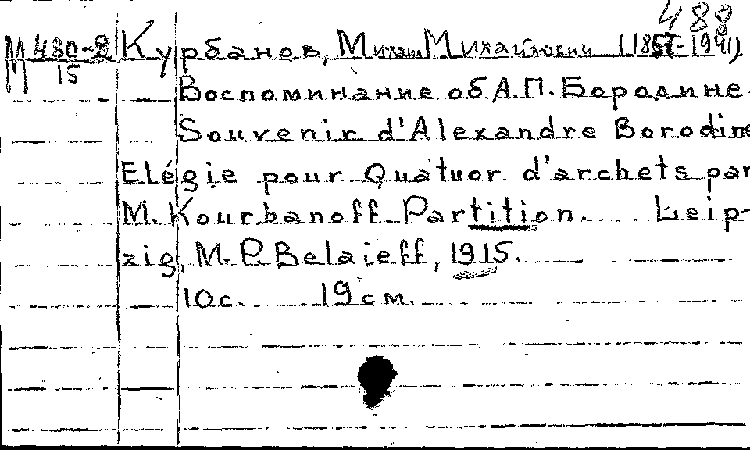 488
М 480-2 Курбанов, Михаил Михайлович (1857-1941)
М 15
Воспоминание об А.П. Бородине.
Souvenir d'Alexandre Borodine
Elégie pour Quatuor d'archets par
M. Kourbanoff Partition. Leip-
zig, M. P. Belaieff, 1915.
10 с. 19 см.